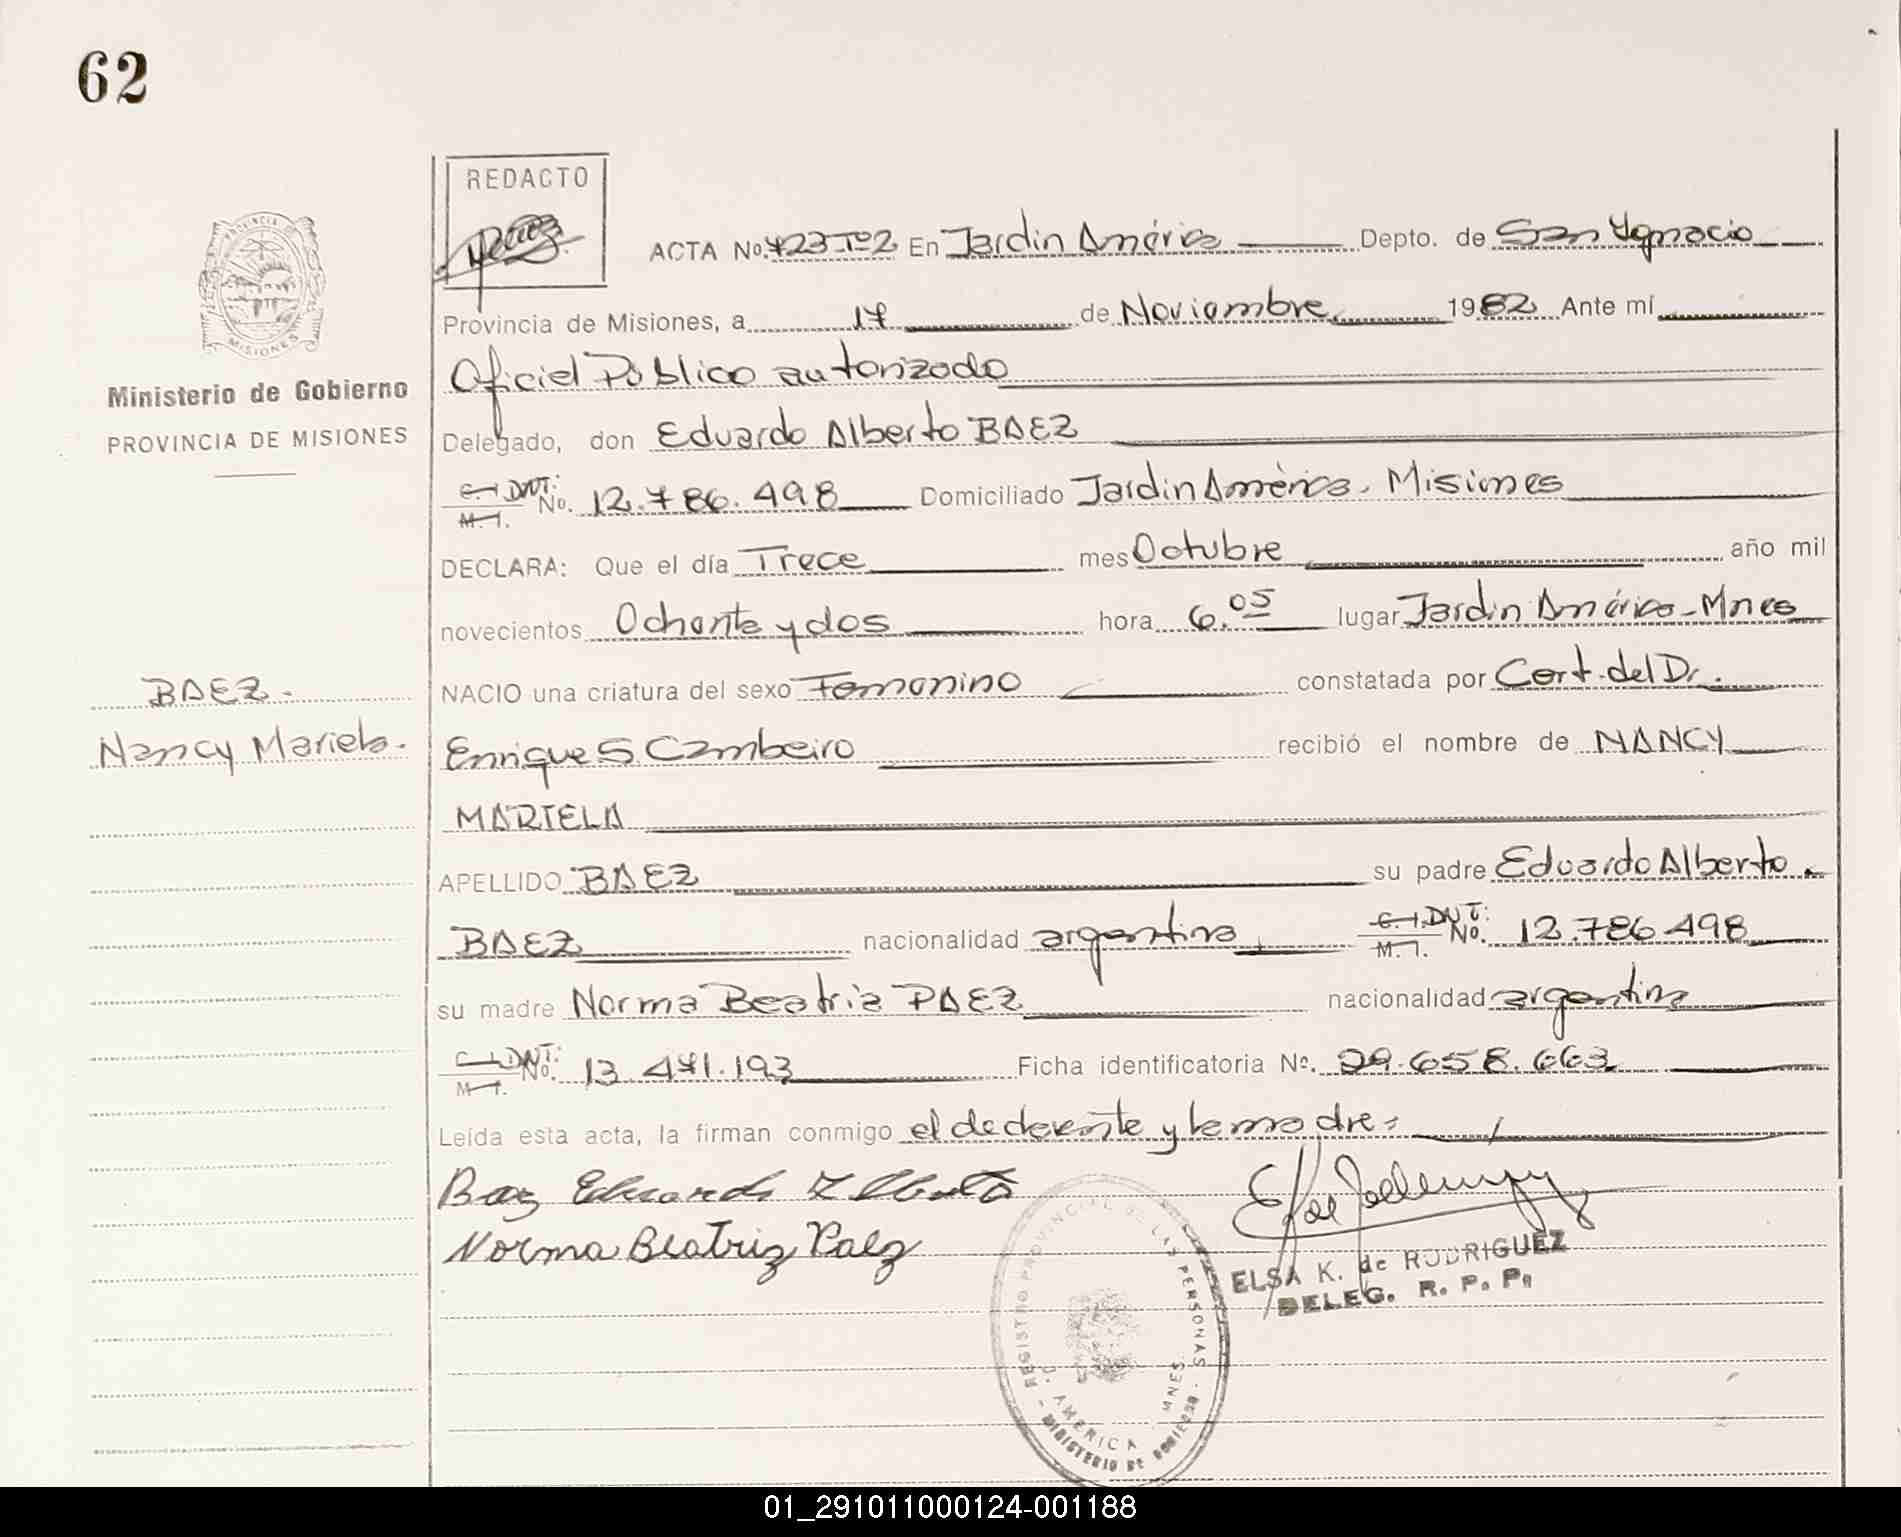 62
REDACTO
ACTA No. 723 Tº2 En Jardin América Depto. de San Ygnacio
Provincia de Misiones, a 17 de Noviembre 1982 Ante mí
Oficial Público autorizado
Ministerio de Gobierno
PROVINCIA DE MISIONES
Delegado, don Eduardo Alberto BAEZ
C. I. DNI: M. I. No. 12.786.498 Domiciliado Jardin América. Misiones
DECLARA: Que el día Trece mes Octubre año mil
novecientos Ochenta y dos hora 6.05 lugar Jardin América - Mnes
BAEZ.
NACIO una criatura del sexo Femenino constatada por Cert. del Dr.
Nancy Mariela.
Enrique S. Cambeiro recibió el nombre de NANCY
MARIELA
APELLIDO BAEZ su padre Eduardo Alberto
BAEZ nacionalidad argentina C. I. DNI: M. I. No. 12.786.498
su madre Norma Beatriz PAEZ nacionalidad argentina
C. I. DNI: M. I. No. 13.471.193 Ficha identificatoria Nº. 29.658.663
Leída esta acta, la firman conmigo el declarante y la madre=
Baez Eduardo Alberto
Norma Beatriz Paez
ELSA K. de RODRIGUEZ
DELEG. R. P. P.
REGISTRO PROVINCIAL DE LAS PERSONAS
J. AMERICA MNES.
MINISTERIO DE GOBIERNO
01_291011000124-001188